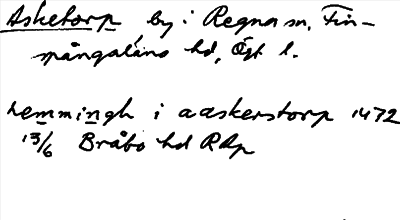 Asketorp by i Regna sn, Fin-
spångaläns hd, Ögl l.
Lemmingh i aaskerstorp 1472
13/6 Bråbo hd RAp